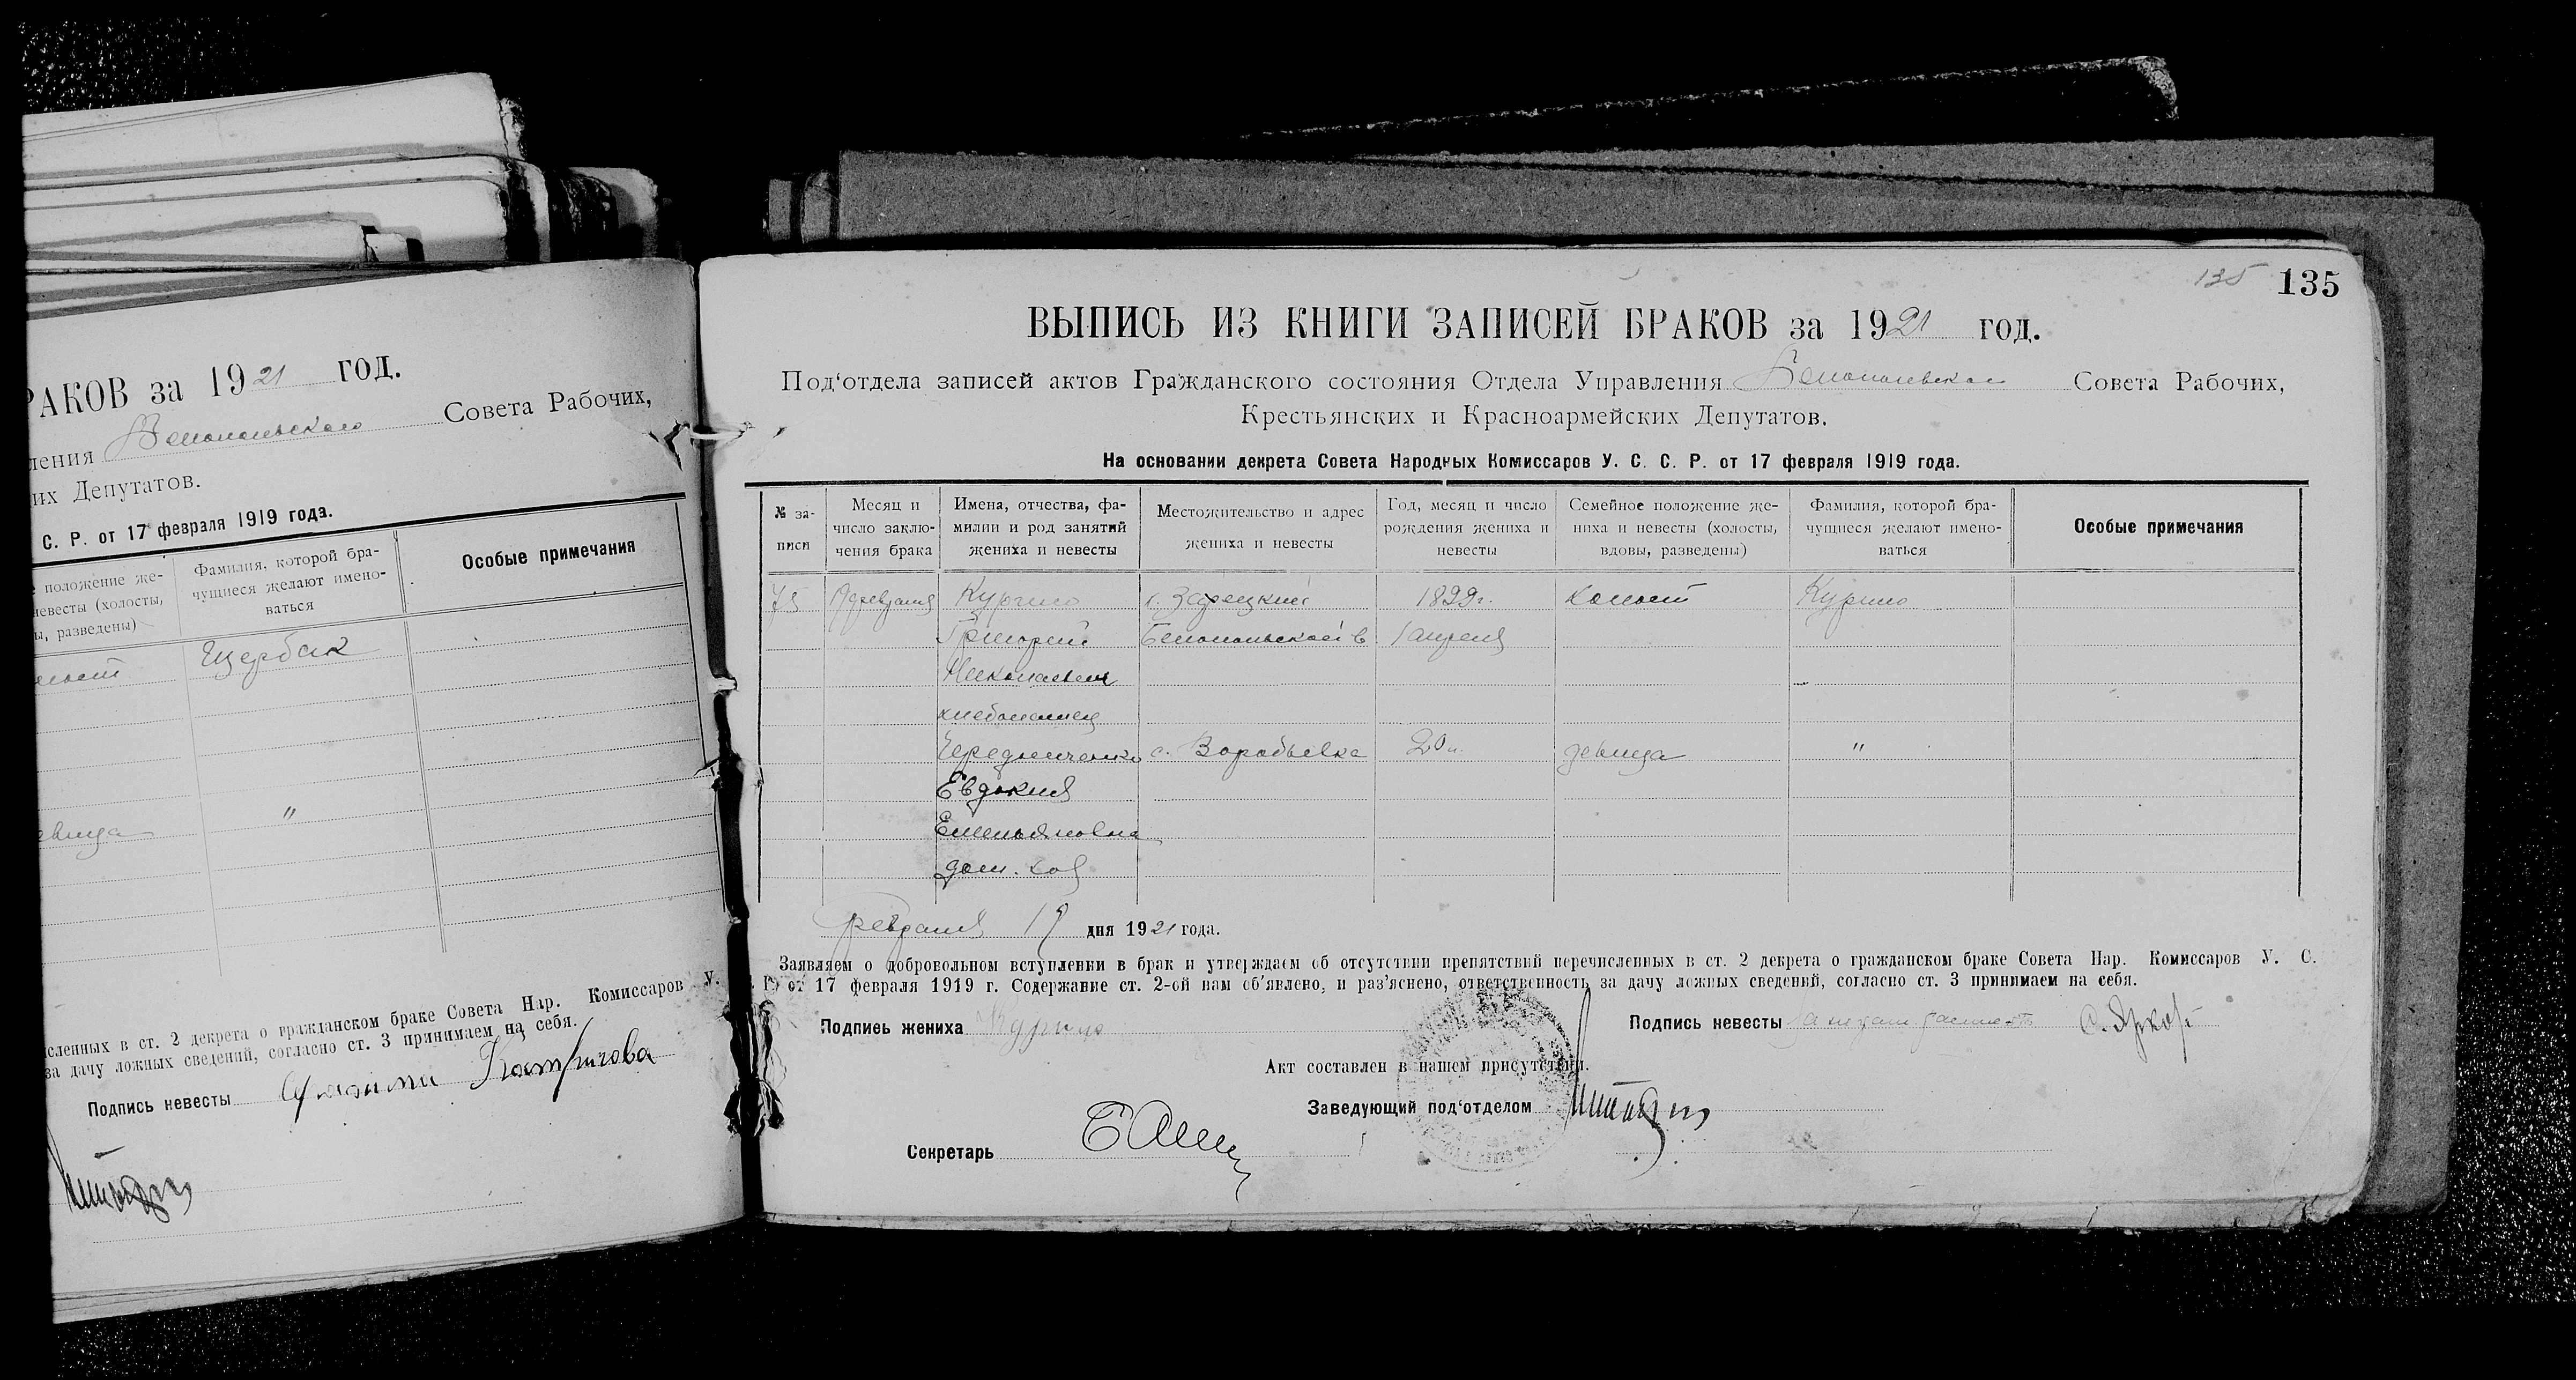 РАКОВ за 1921 год.
ления Белопольского Совета Рабочих,
их Депутатов.
С. Р. от 17 февраля 1919 года.
положение же-
невесты (холосты,
ы, разведены)
Фамилия, которой бра-
чущиеся желают имено-
ваться
Особые примечания
Щербак
евица
"
исленных в ст. 2 декрета о гражданском браке Совета Нар. Комиссаров У.
за дачу ложных сведений, согласно ст. 3 принимаем на себя.
Подпись невесты
135 135
ВЫПИСЬ ИЗ КНИГИ ЗАПИСЕЙ БРАКОВ за 1921 год.
Под'отдела записей актов Гражданского состояния Отдела Управления Белопольского Совета Рабочих,
Крестьянских и Красноармейских Депутатов.
На основании декрета Совета Народных Комиссаров У. С. С. Р. от 17 февраля 1919 года.
№ за-
писи
Месяц и
число заклю-
чения брака
Имена, отчества, фа-
милии и род занятий
жениха и невесты
Местожительство и адрес
жениха и невесты
Год, месяц и число
рождения жениха и
невесты
Семейное положение же-
ниха и невесты (холосты,
вдовы, разведены)
Фамилия, которой бра-
чущиеся желают имено-
ваться
Особые примечания
75 февраля 1899г. холост
Григорий Белопольской в. 1 апреля
Николаевич
хлебопашец
Чередниченко с. Воробьевка 20 л. девица "
Евдокия
Емельяновна
дом. хоз
февраля дня 1921 года.
Заявляем о добровольном вступлении в брак и утверждаем об отсутствии препятствий перечисленных в ст. 2 декрета о гражданском браке Совета Нар. Комиссаров У. С.
Р. от 17 февраля 1919 г. Содержание ст. 2-ой нам об'явлено, и раз'яснено, ответственность за дачу ложных сведений, согласно ст. 3 принимаем на себя.
Подпись жениха
Подпись невесты
Акт составлен в нашем присутствии.
Заведующий под'отделом
Секретарь